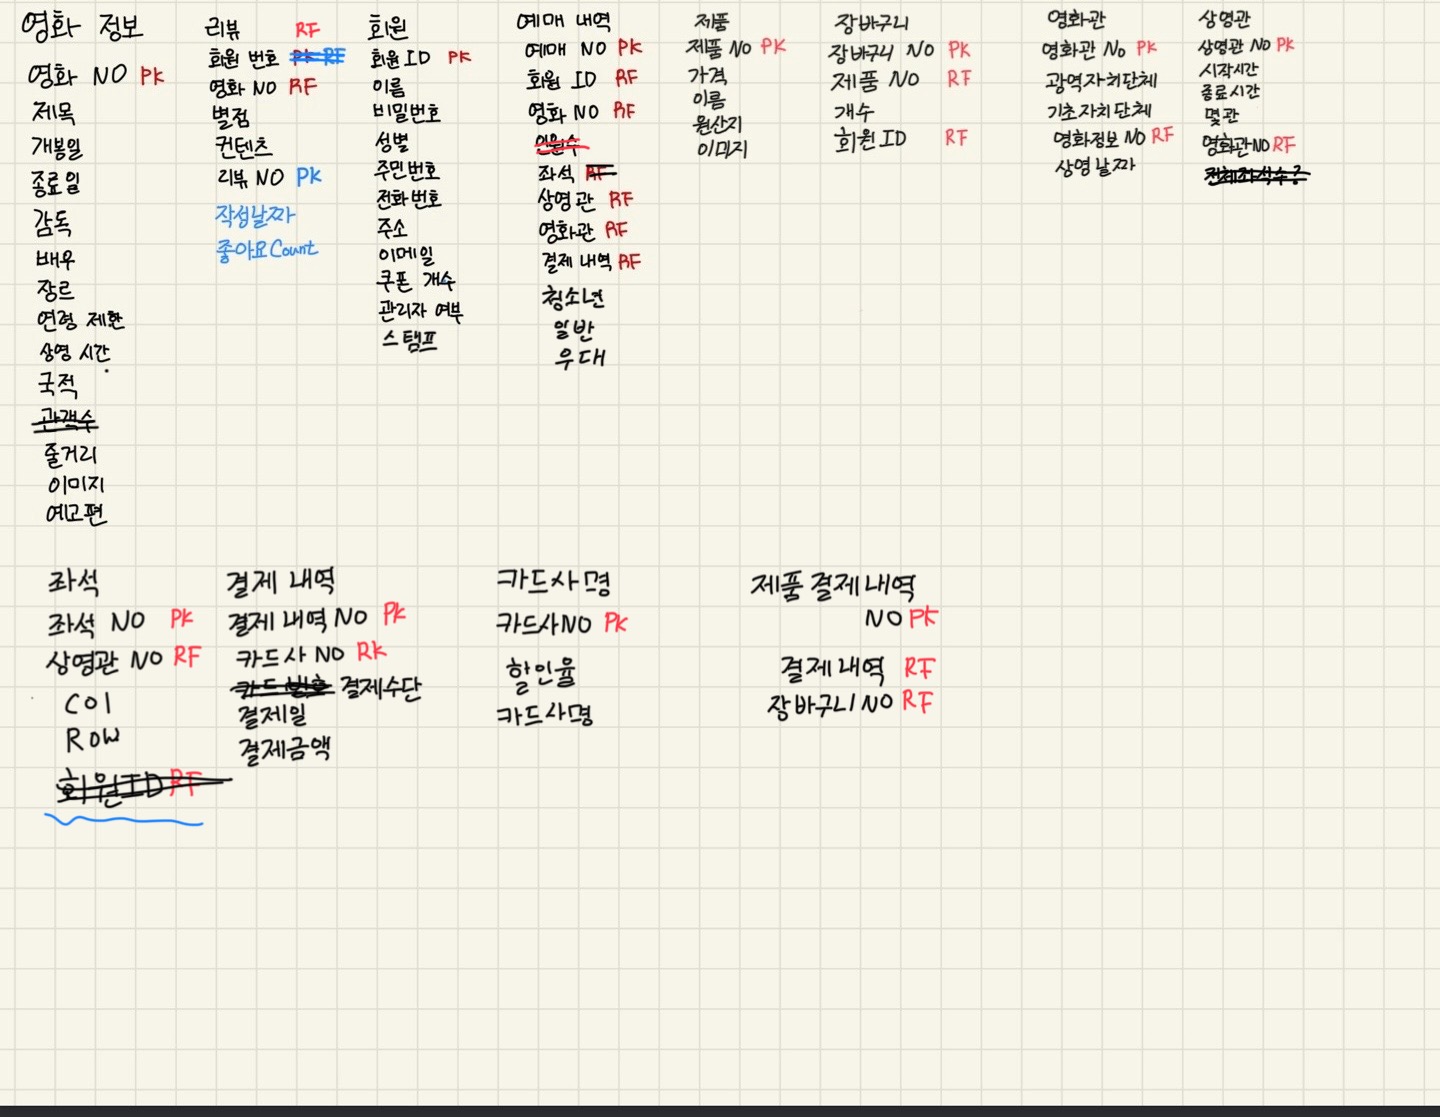 영화 정보
영화 NO PK
제목
개봉일
종료일
감독
배우
장르
연령 제한
상영 시간
국적
관객수
줄거리
이미지
예고편
리뷰 RF
회원 번호 PK RF
영화 NO RF
별점
컨텐츠
리뷰 NO PK
작성날짜
좋아요Count
회원
회원 ID PK
이름
비밀번호
성별
주민번호
전화번호
주소
이메일
쿠폰 개수
관리자 여부
스탬프
예매 내역
예매 NO PK
회원 ID RF
영화 NO RF
인원수
좌석 RF
상영관 RF
영화관 RF
결제 내역 RF
청소년
일반
우대
제품
제품 NO PK
가격
이름
원산지
이미지
장바구니
장바구니 NO PK
제품 NO RF
개수
회원 ID RF
영화관
영화관 No PK
광역자치단체
기초자치단체
영화정보 NO RF
상영날짜
상영관
상영관 NO PK
시작시간
종료시간
몇관
영화관NO RF
전체좌석수?
좌석
좌석 NO PK
상영관 NO RF
COl
ROW
회원ID RF
결제 내역
결제 내역 NO PK
카드사 NO RK
카드 번호 결제수단
결제일
결제금액
카드사명
카드사NO PK
할인율
카드사명
제품 결제 내역
NO PK
결제내역 RF
장바구니 NO RF